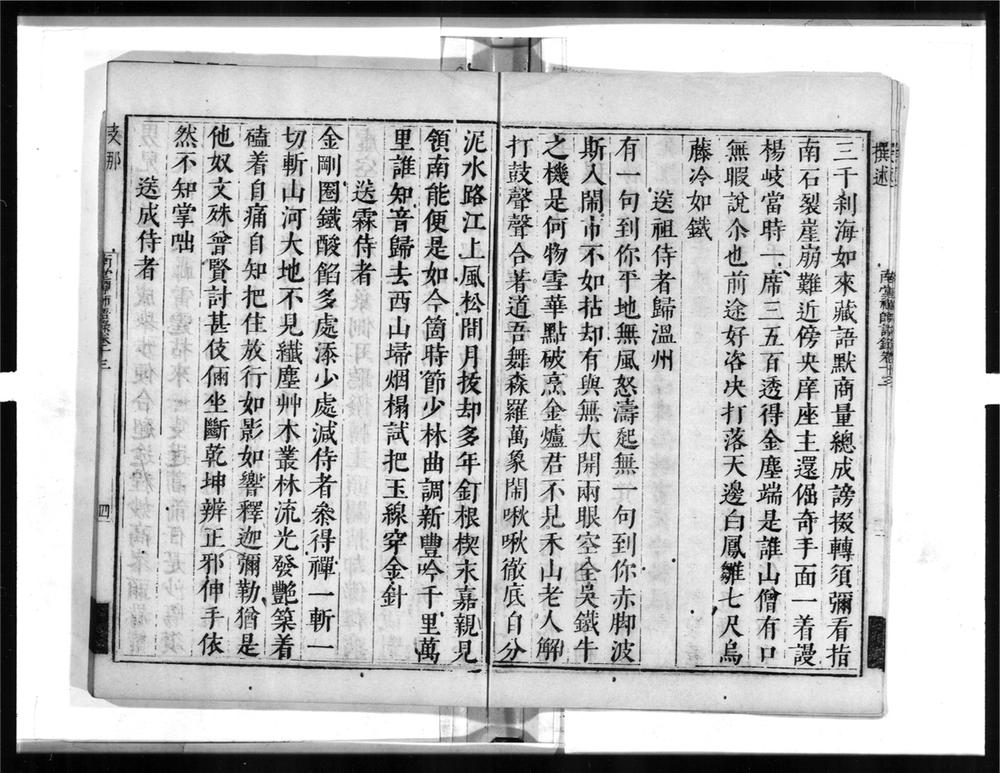 撰述
三千剎海如來藏語默商量總成謗掇轉須彌看指
南石裂崖崩難近傍央庠座主還倔奇手面一着謾
楊岐當時一席三五百透得金塵端是誰山僧有口
無暇說尒也前途好咨決打落天邊白鳳雛七尺烏
藤冷如鐵
送祖侍者歸溫州
有一句到你平地無風怒濤起無一句到你赤脚波
斯入閙市不如拈却有與無大開兩眼空全吳鐵牛
之機是何物雪華點破烹金爐君不見禾山老人解
打鼓聲聲合著道吾舞森羅萬象鬧啾啾徹底自分
泥水路江上風松間月拔却多年釘根楔末嘉親見
領南能便是如今箇時節少林曲調新豐吟千里萬
里誰知音歸去西山埽烟榻試把玉線穿金針
送霖侍者
金剛圈鐵酸餡多處添少處減侍者叅得禪一斬一
切斬山河大地不見纖塵艸木叢林流光發艷築着
磕着自痛自知把住放行如影如響釋迦彌勒猶是
他奴文殊曾賢討甚伎倆坐斷乾坤辨正邪伸手依
然不知掌咄
送成侍者
支那
四